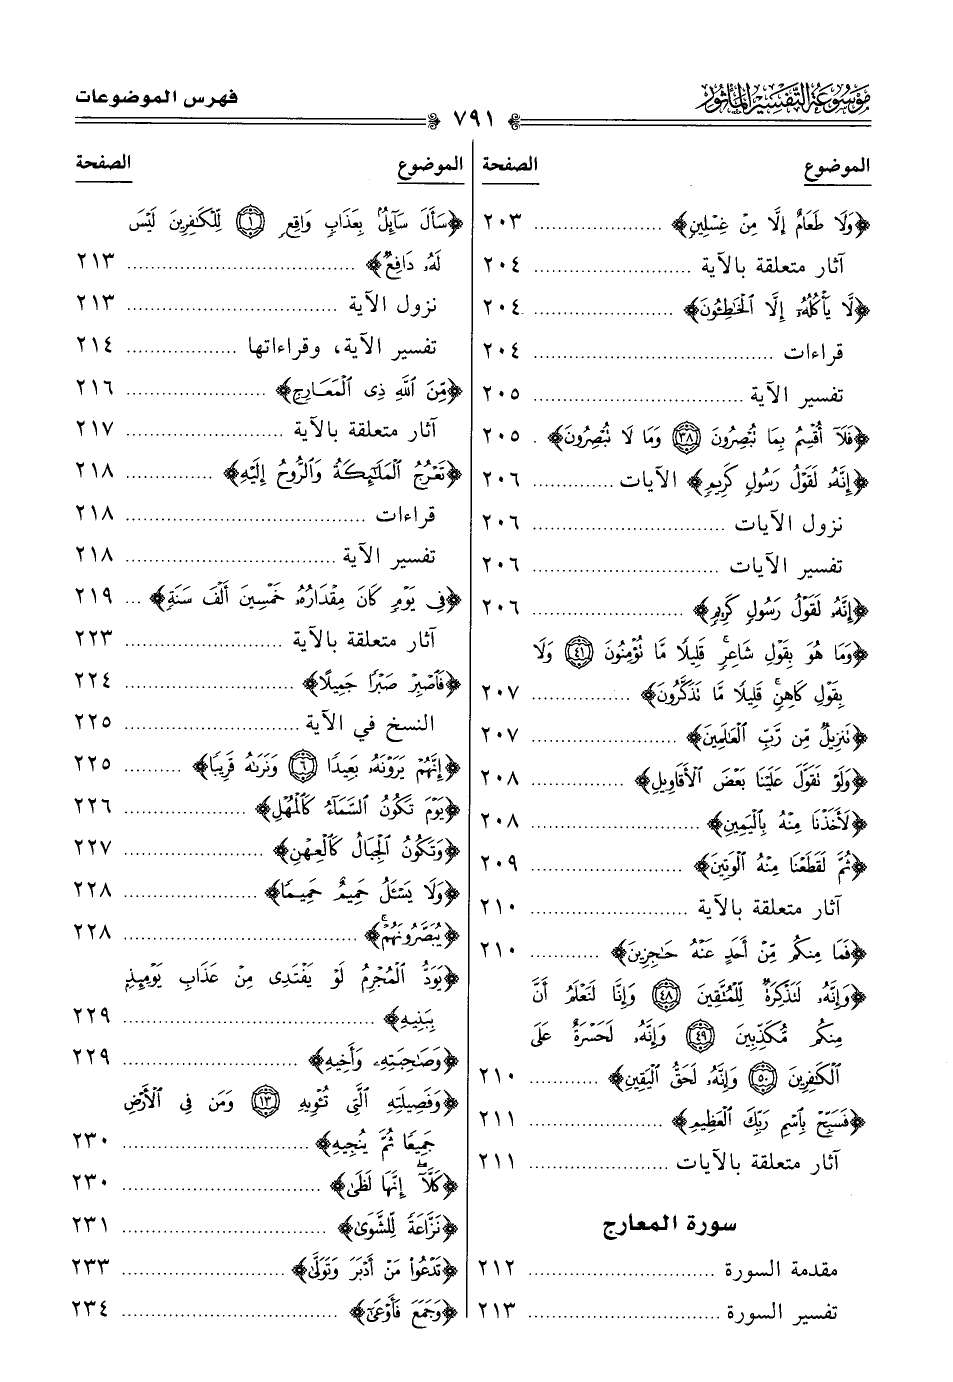 موسوعة التفسير المأثور
فهرس الموضوعات
٧٩١
الموضوع الصفحة
﴿وَلَا طَعَامٌ إِلَّا مِنْ غِسْلِينٍ﴾ ..................... ٢٠٣
آثار متعلقة بالآية ........................... ٢٠٤
﴿لَّا يَأْكُلُهُۥٓ إِلَّا ٱلْخَـٰطِـُٔونَ﴾ ..................... ٢٠٤
قراءات ........................................ ٢٠٤
تفسير الآية ................................... ٢٠٥
﴿فَلَآ أُقْسِمُ بِمَا تُبْصِرُونَ ٣٨ وَمَا لَا تُبْصِرُونَ﴾ . ٢٠٥
﴿إِنَّهُۥ لَقَوْلُ رَسُولٍ كَرِيمٍ﴾ الآيات .............. ٢٠٦
نزول الآيات ................................ ٢٠٦
تفسير الآيات ............................... ٢٠٦
﴿إِنَّهُۥ لَقَوْلُ رَسُولٍ كَرِيمٍ﴾ ......................... ٢٠٦
﴿وَمَا هُوَ بِقَوْلِ شَاعِرٍ ۚ قَلِيلًا مَّا تُؤْمِنُونَ ٤١ وَلَا
بِقَوْلِ كَاهِنٍ ۚ قَلِيلًا مَّا تَذَكَّرُونَ﴾ ................ ٢٠٧
﴿تَنزِيلٌ مِّن رَّبِّ ٱلْعَـٰلَمِينَ﴾ ........................ ٢٠٧
﴿وَلَوْ تَقَوَّلَ عَلَيْنَا بَعْضَ ٱلْأَقَاوِيلِ﴾ ............... ٢٠٨
﴿لَأَخَذْنَا مِنْهُ بِٱلْيَمِينِ﴾ ............................ ٢٠٨
﴿ثُمَّ لَقَطَعْنَا مِنْهُ ٱلْوَتِينَ﴾ .......................... ٢٠٩
آثار متعلقة بالآية ........................... ٢١٠
﴿فَمَا مِنكُم مِّنْ أَحَدٍ عَنْهُ حَـٰجِزِينَ﴾ ............ ٢١٠
﴿وَإِنَّهُۥ لَتَذْكِرَةٌ لِّلْمُتَّقِينَ ٤٨ وَإِنَّا لَنَعْلَمُ أَنَّ
مِنكُم مُّكَذِّبِينَ ٤٩ وَإِنَّهُۥ لَحَسْرَةٌ عَلَى
ٱلْكَـٰفِرِينَ ٥٠ وَإِنَّهُۥ لَحَقُّ ٱلْيَقِينِ﴾ ............ ٢١٠
﴿فَسَبِّحْ بِٱسْمِ رَبِّكَ ٱلْعَظِيمِ﴾ ..................... ٢١١
آثار متعلقة بالآيات ........................ ٢١١
سورة المعارج
مقدمة السورة ................................ ٢١٢
تفسير السورة ................................ ٢١٣
الموضوع الصفحة
﴿سَأَلَ سَآئِلٌۢ بِعَذَابٍ وَاقِعٍ ١ لِّلْكَـٰفِرِينَ لَيْسَ
لَهُۥ دَافِعٌ﴾ ...................................... ٢١٣
نزول الآية ................................... ٢١٣
تفسير الآية، وقراءاتها ................... ٢١٤
﴿مِّنَ ٱللَّهِ ذِى ٱلْمَعَارِجِ﴾ ........................ ٢١٦
آثار متعلقة بالآية ........................... ٢١٧
﴿تَعْرُجُ ٱلْمَلَـٰٓئِكَةُ وَٱلرُّوحُ إِلَيْهِ﴾ ............... ٢١٨
قراءات ........................................ ٢١٨
تفسير الآية ................................... ٢١٨
﴿فِى يَوْمٍ كَانَ مِقْدَارُهُۥ خَمْسِينَ أَلْفَ سَنَةٍ﴾ ... ٢١٩
آثار متعلقة بالآية ........................... ٢٢٣
﴿فَٱصْبِرْ صَبْرًا جَمِيلًا﴾ ........................... ٢٢٤
النسخ في الآية .............................. ٢٢٥
﴿إِنَّهُمْ يَرَوْنَهُۥ بَعِيدًا ٦ وَنَرَىٰهُ قَرِيبًا﴾ .......... ٢٢٥
﴿يَوْمَ تَكُونُ ٱلسَّمَآءُ كَٱلْمُهْلِ﴾ .................... ٢٢٦
﴿وَتَكُونُ ٱلْجِبَالُ كَٱلْعِهْنِ﴾ ....................... ٢٢٧
﴿وَلَا يَسْـَٔلُ حَمِيمٌ حَمِيمًا﴾ ....................... ٢٢٨
﴿يُبَصَّرُونَهُمْ ۚ﴾ ....................................... ٢٢٨
﴿يَوَدُّ ٱلْمُجْرِمُ لَوْ يَفْتَدِى مِنْ عَذَابِ يَوْمِئِذٍۭ
بِبَنِيهِ﴾ ........................................... ٢٢٩
﴿وَصَـٰحِبَتِهِۦ وَأَخِيهِ﴾ .............................. ٢٢٩
﴿وَفَصِيلَتِهِ ٱلَّتِى تُـْٔوِيهِ ١٣ وَمَن فِى ٱلْأَرْضِ
جَمِيعًا ثُمَّ يُنجِيهِ﴾ ............................... ٢٣٠
﴿كَلَّآ ۖ إِنَّهَا لَظَىٰ﴾ .................................. ٢٣٠
﴿نَزَّاعَةً لِّلشَّوَىٰ﴾ ................................. ٢٣١
﴿تَدْعُوا۟ مَنْ أَدْبَرَ وَتَوَلَّىٰ﴾ .......................... ٢٣٣
﴿وَجَمَعَ فَأَوْعَىٰٓ﴾ .................................... ٢٣٤